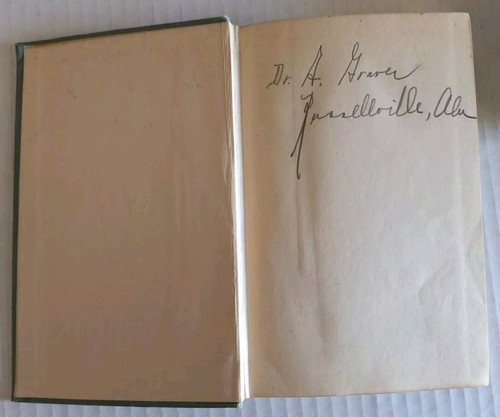 Dr. A. Graves
Russellville, Ala